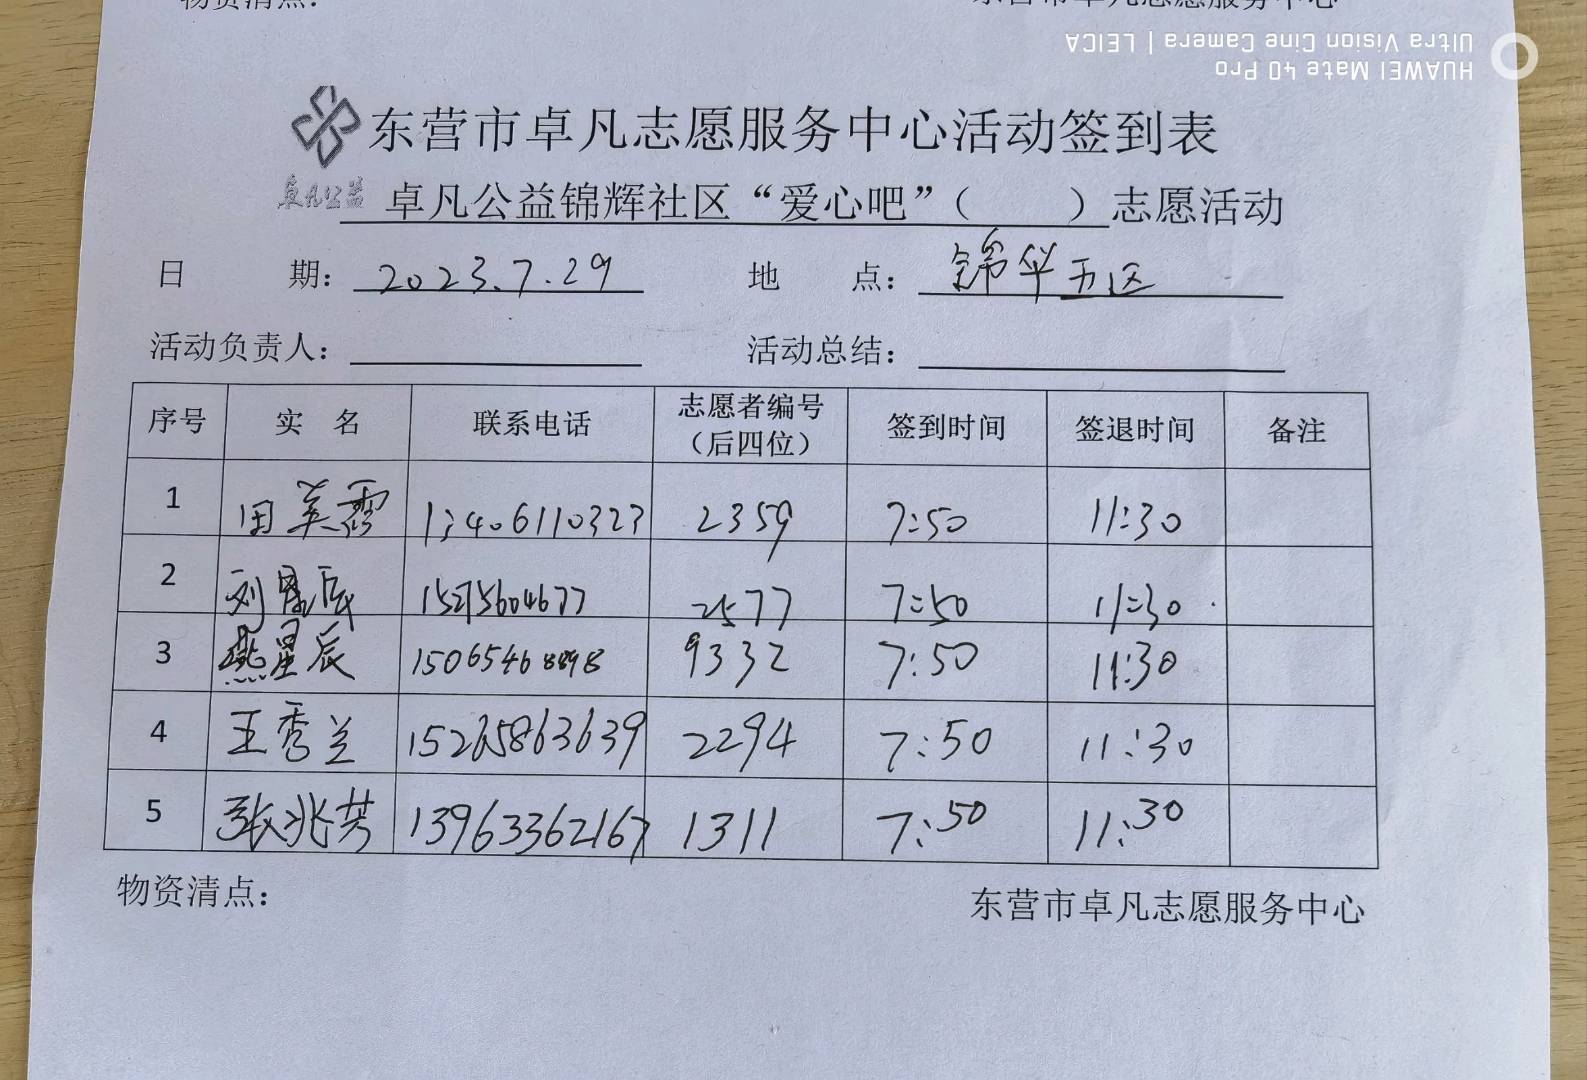 物资清点：
东营市卓凡志愿服务中心
HUAWEI Mate 40 Pro
Ultra Vision Cine Camera | LEICA
东营市卓凡志愿服务中心活动签到表
卓凡公益
卓凡公益锦辉社区“爱心吧”（　　）志愿活动
日　期： 2023.7.29 地　点： 锦华五区
活动负责人： 活动总结：
序号 实 名 联系电话 志愿者编号（后四位） 签到时间 签退时间 备注
1 田美霞 13406110323 2359 7:50 11:30
2 刘 2577 7:50 11:30
3 燕星辰 15065468898 9332 7:50 11:30
4 王秀兰 15265863639 2294 7:50 11:30
5 张兆芳 13963362167 1311 7:50 11:30
物资清点：
东营市卓凡志愿服务中心